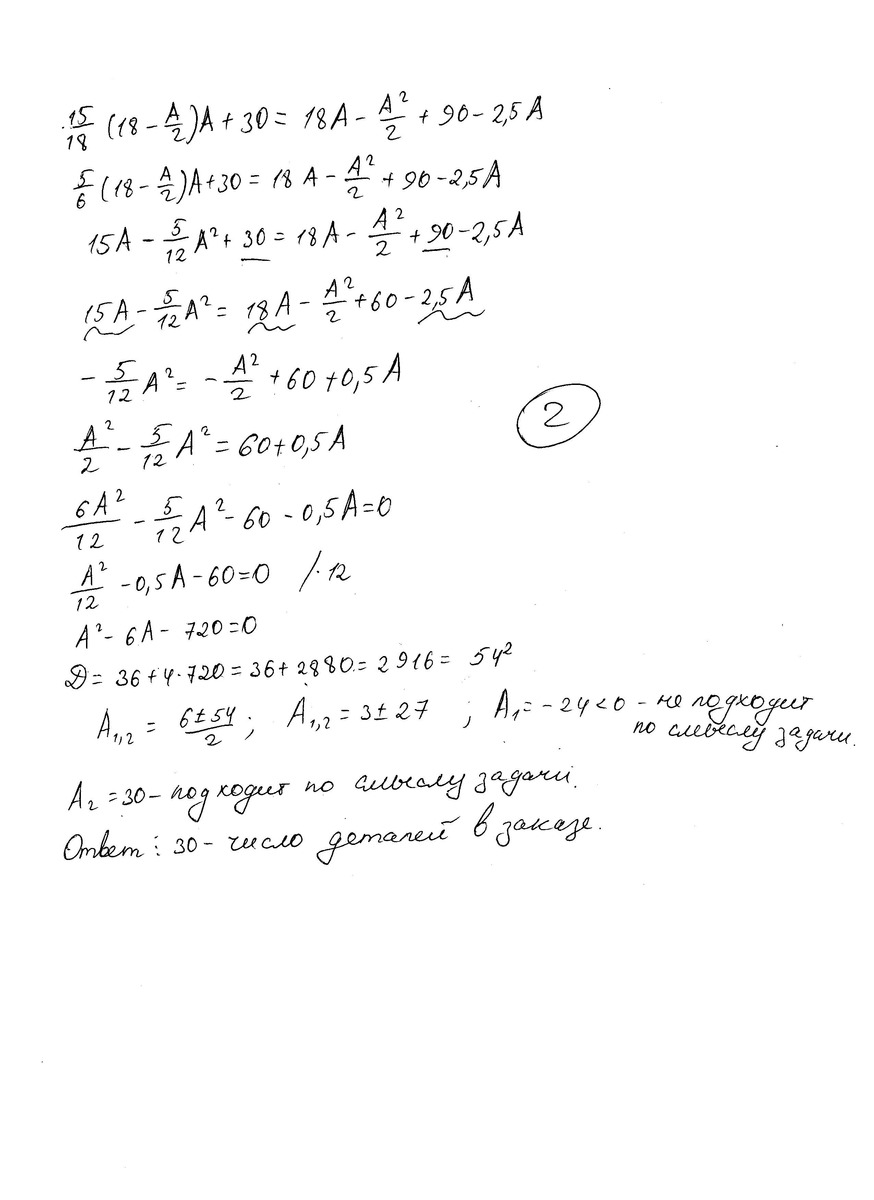 15/18 (18 - A/2)A + 30 = 18A - A²/2 + 90 - 2,5A
5/6 (18 - A/2)A + 30 = 18A - A²/2 + 90 - 2,5A
15A - 5/12 A² + 30 = 18A - A²/2 + 90 - 2,5A
15A - 5/12 A² = 18A - A²/2 + 60 - 2,5A
- 5/12 A² = - A²/2 + 60 + 0,5A
2
A²/2 - 5/12 A² = 60 + 0,5A
6A²/12 - 5/12 A² - 60 - 0,5A = 0
A²/12 - 0,5A - 60 = 0 /· 12
A² - 6A - 720 = 0
D = 36 + 4·720 = 36 + 2880 = 2916 = 54²
A₁,₂ = 6±54/2 ; A₁,₂ = 3 ± 27 ; A₁ = - 24 < 0 - не подходит
по смыслу задачи.
A₂ = 30 - подходит по смыслу задачи.
Ответ: 30 - число деталей в заказе.